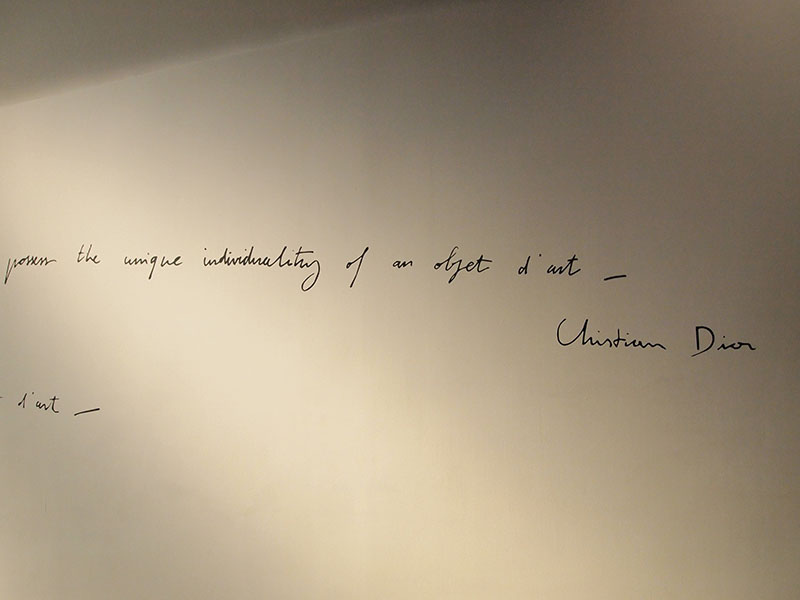 possess the unique individuality of an objet d'art —
Christian Dior
d'art —